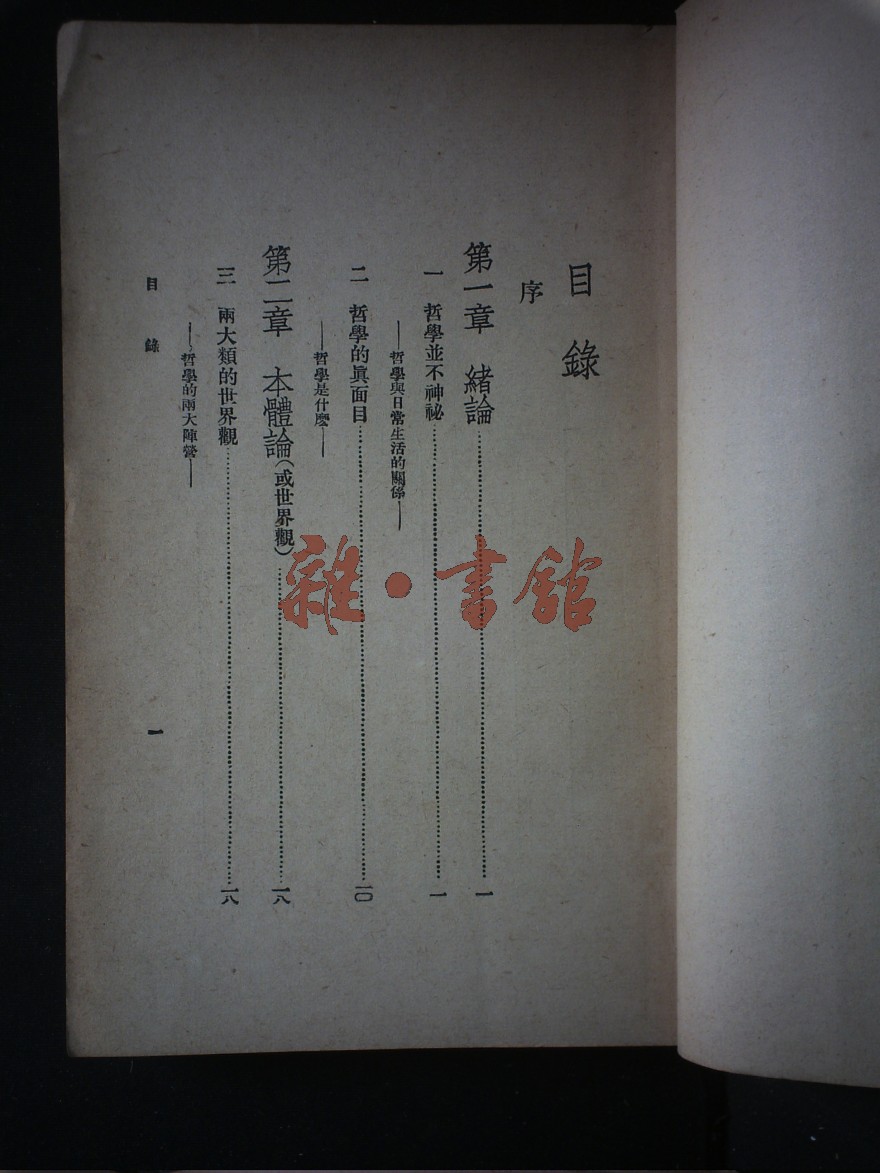 目錄
序
第一章　緒論……一
一　哲學並不神祕……一
——哲學與日常生活的關係——
二　哲學的眞面目……一〇
——哲學是什麼——
第二章　本體論（或世界觀）……一八
三　兩大類的世界觀……一八
——哲學的兩大陣營——
目錄
一
雜·書館